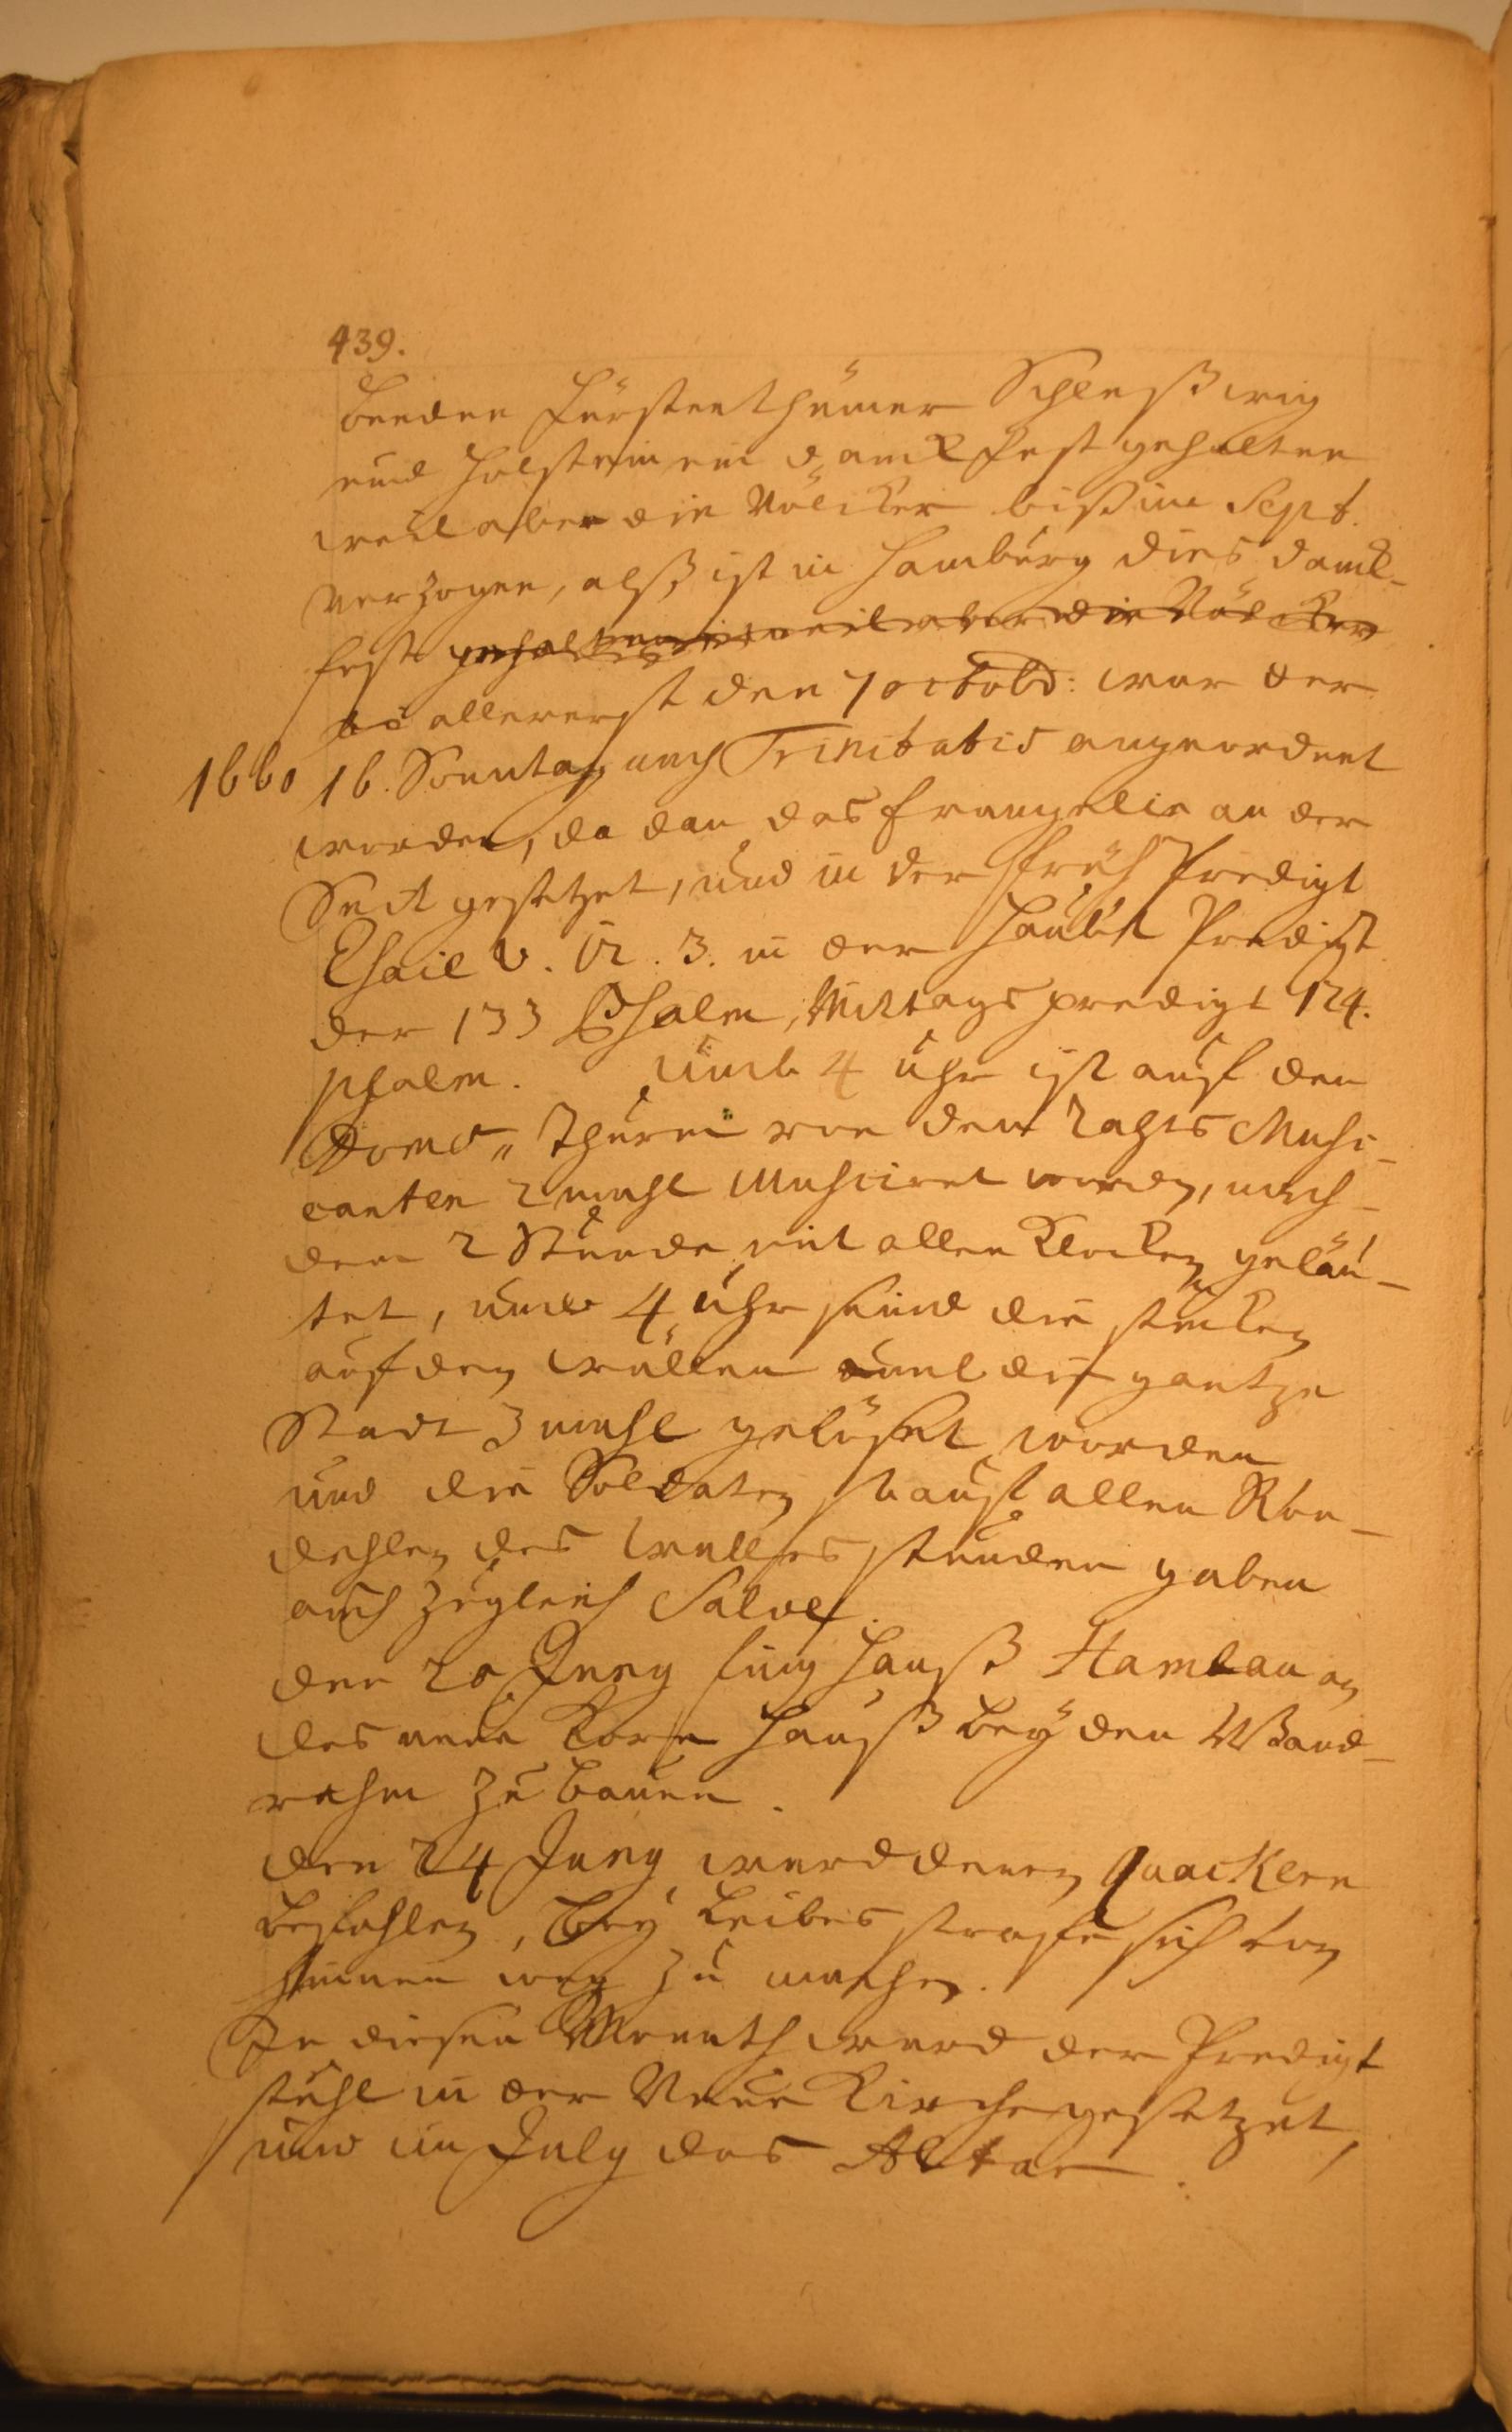 439.
beeden Fürstenthümer Schleßwig
und Holstein ein danckfest gehalten
weil aber die Völcker biß im Sept.
verzogen, alß ist in Hamburg dies danck-
fest gehalten weil aber die Völcker
allererst den 7 octobr: war der
1660 16. Sonntag nach Trinitatis angeordnet
worden, da dan das Evangelie an der
Seit gesetzet, und in der Früh Predigt
Esaie V. 2. 3. in der Haubt Predigt
der 133 Psalm, Mittags predigt 124.
psalm. umb 4 uhr ist auf den
Doms" Thurm von den Rahts Musi-
canten 2 mahl Musiciret worden, nach-
dem 2 Stunde mit allen Klocken geläu-
tet, umb 4 uhr seind die stücken
auf den wällen umb die gantze
Stadt 3 mahl gelöset worden
und die Soldaten so auf allen Ron-
dehlen des walles stunden gaben
auch zugleich Salve.
den 20 Juny fing Hanß Hamelau an
das neue Korn Hauß bey den Wand-
rahm zu bauen.
den 24 Juny ward denen Quackern
befohlen, bey Leibes strafe sich von
hinnen weg zu machen.
In diesen Monath ward der Predigt
stuhl in der Neue Kirche gesetzet,
und im July das Altar.